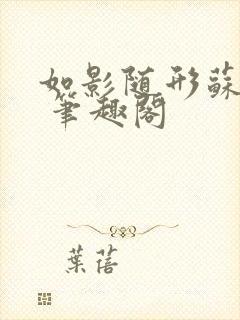 如影随形蘇
筆趣閣
葉蓓